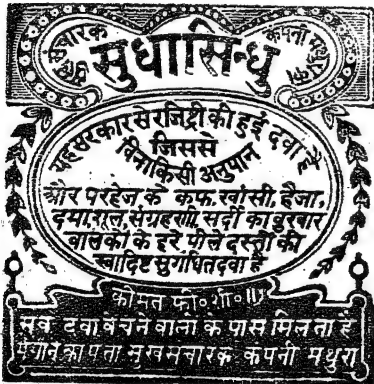 सुधासिन्धु
यह सरकार से रजिष्ट्री की हुई दवा है
जिससे
बिना किसी अनुपान
और परहेज, के कफ, खांसी, हैजा,
दमा, शूल, संग्रहणी, सर्दी का बुखार
बालकों के हरे पीले दस्तों की
स्वादिष्ट सुगंधित दवा है
कीमत फी॰ शी॰ ॥)
सब दवा बेचने वालों के पास मिलता है
मंगाने का पता सुखसंचारक कंपनी मथुरा